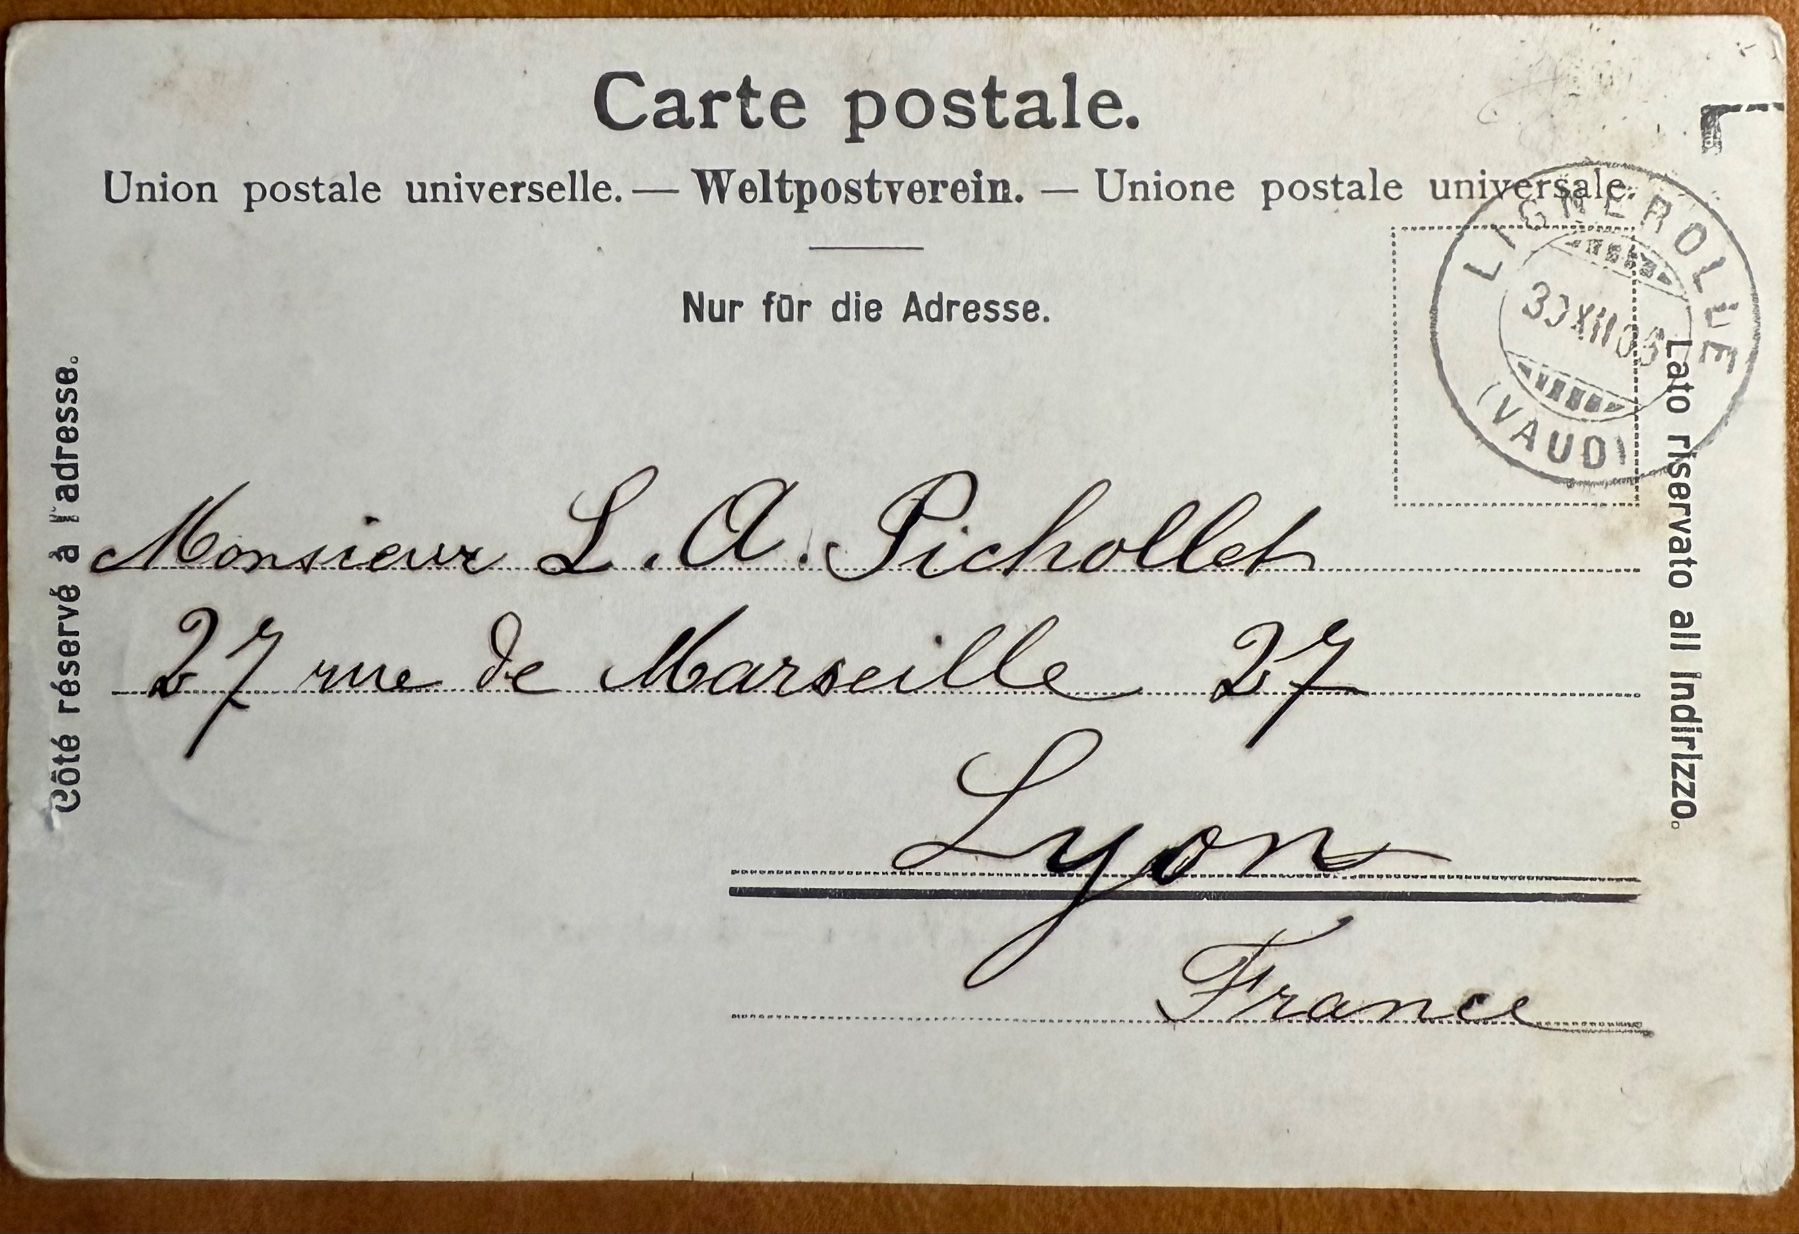 Carte postale.
Union postale universelle. — Weltpostverein. — Unione postale universale.
Nur für die Adresse.
Côté réservé à l'adresse.
Lato riservato all indirizzo.
LIGNEROLLE
30 XII 05
(VAUD)
Monsieur L. A. Pichollet
27 rue de Marseille 27
Lyon
France